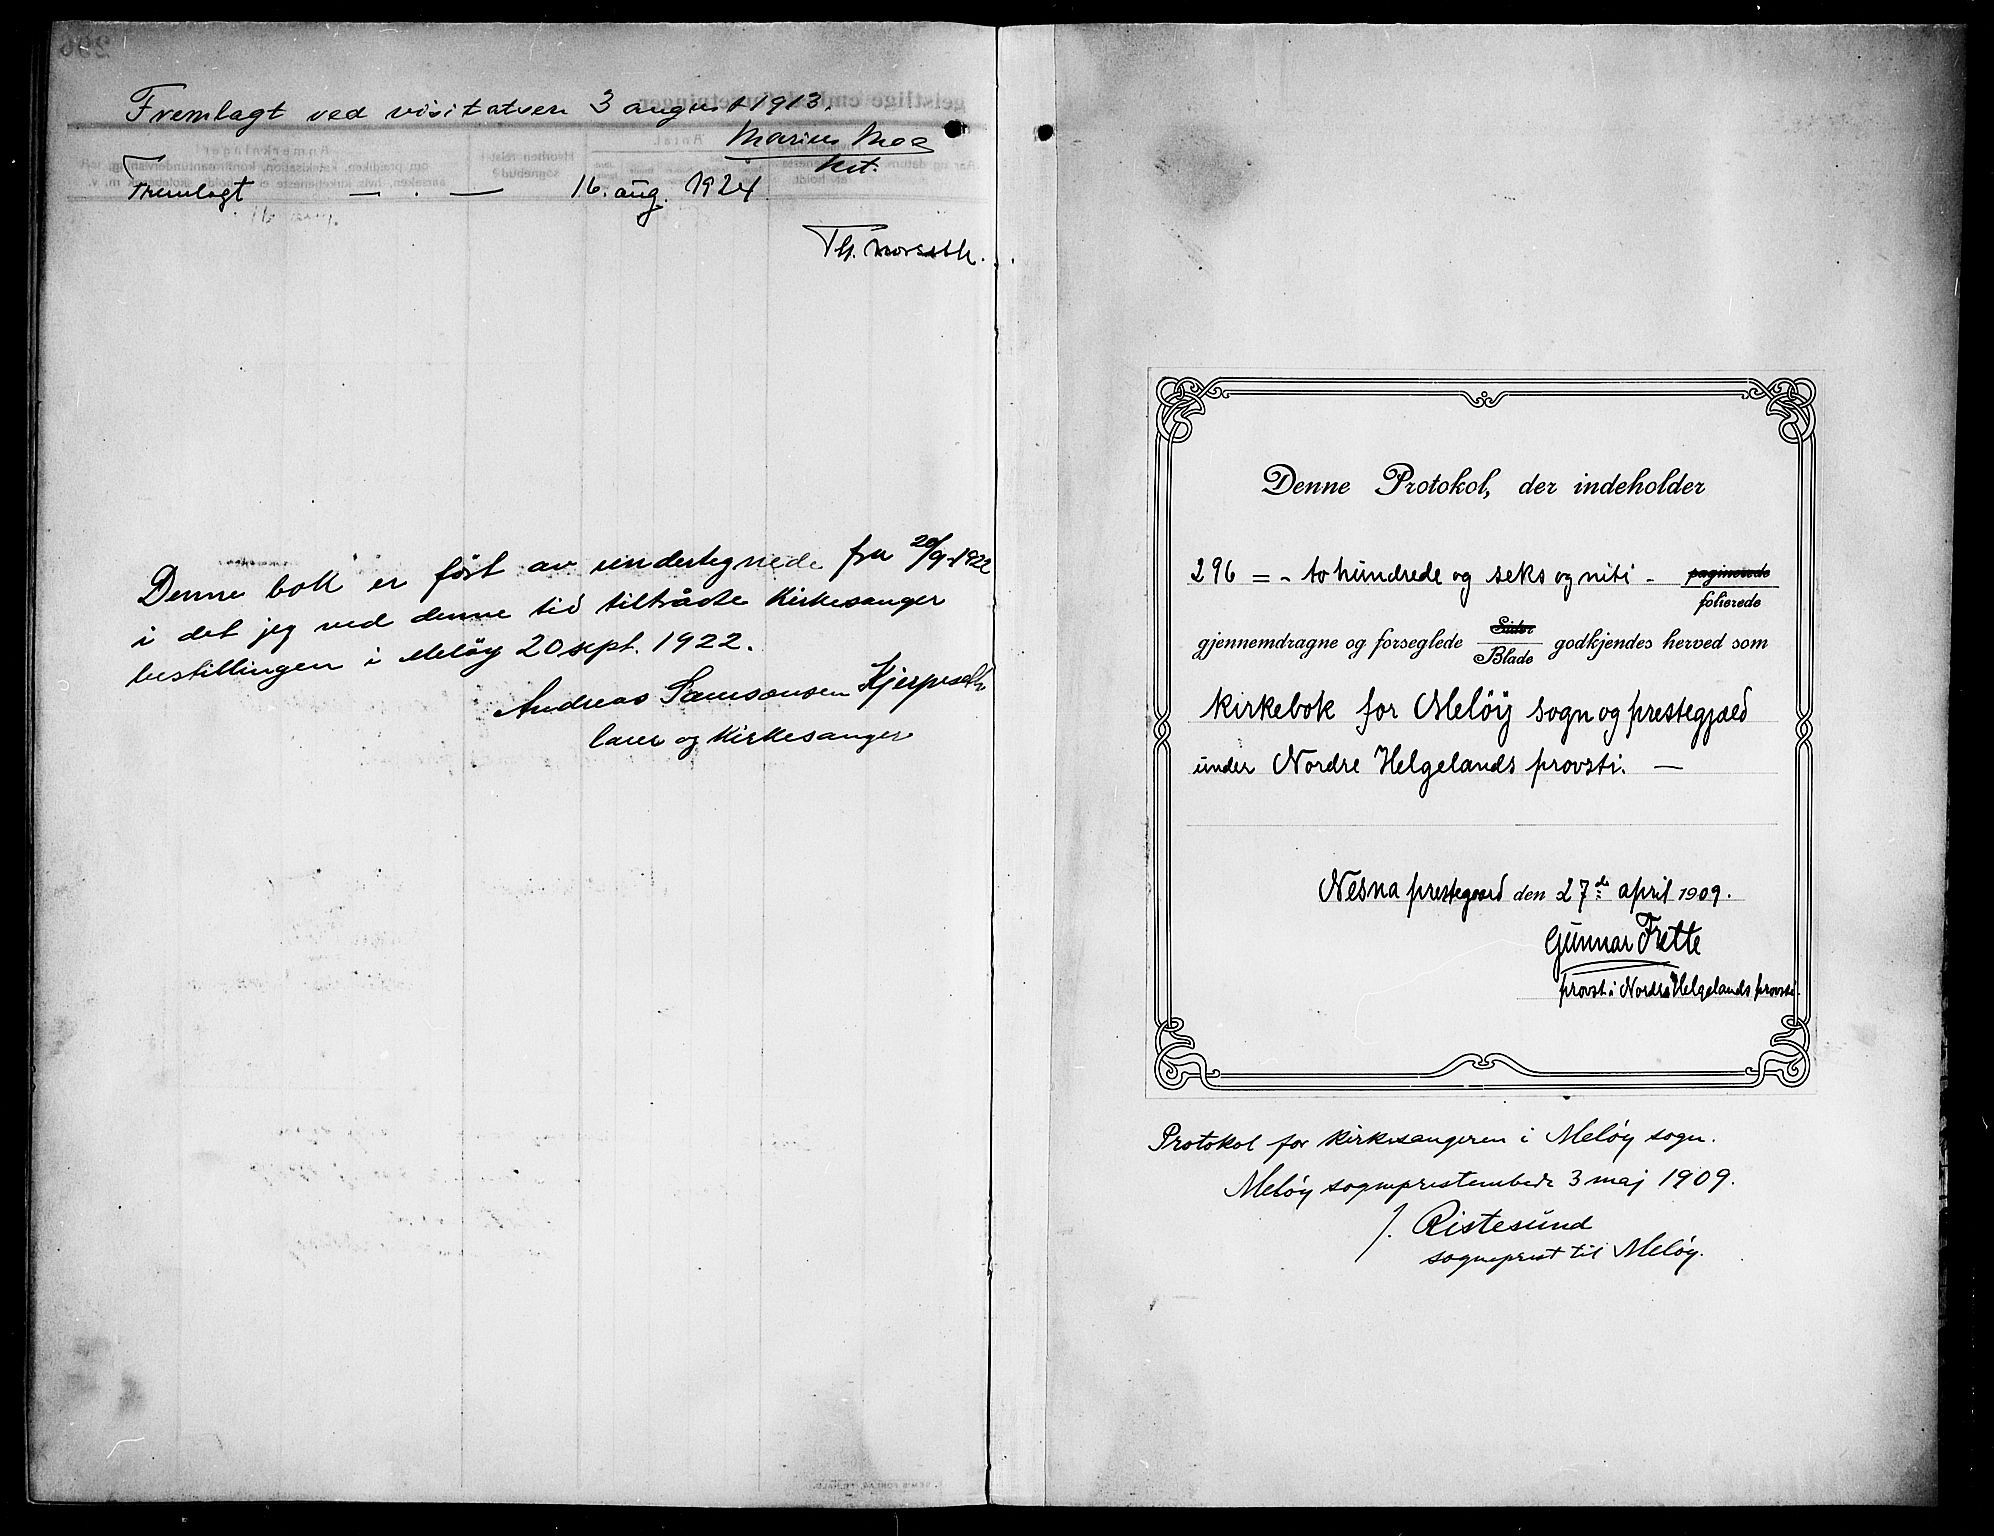 Fremlagt ved visitatsen 3 august 1913.
Marius Moe
Fremlagt — . — 16. aug. 1924
Denne bok er ført av undertegnede fra 20/9-1922
i det jeg ved denne tid tiltrådte kirkesanger
bestillingen i Meløy 20 sept. 1922.
Andreas Samsonsen
lærer og kirkesanger
Denne Protokol, der indeholder
296 = - to hundrede og seks og niti - paginerede
folierede
gjennemdragne og forseglede Sider godkjendes herved som
Blade
kirkebok for Meløy sogn og prestegjæld
under Nordre Helgelands provsti. —
Nesna prestegaard den 27de april 1909.
Gunnar Frette
provst i Nordre Helgelands provsti.
Protokol for kirkesangeren i Meløy sogn.
Meløy sogneprestembede 3 maj 1909.
J. Ristesund
sogneprest til Meløy.